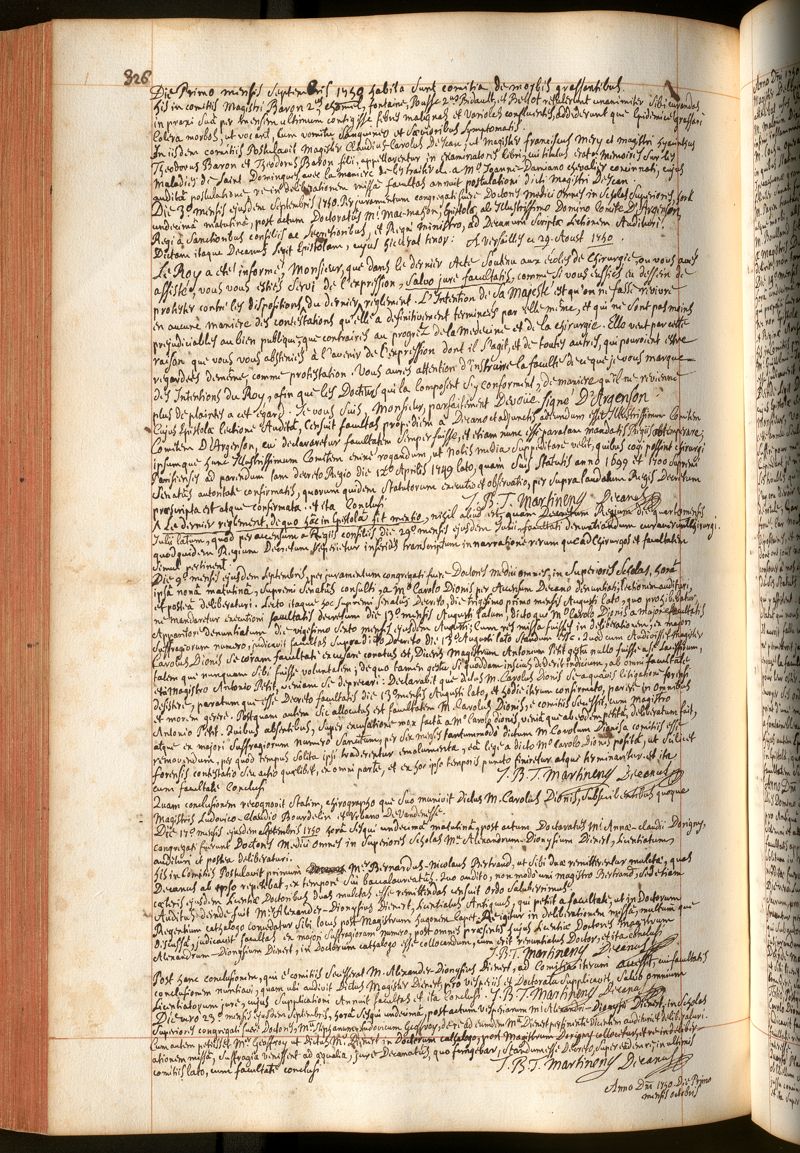 826
Die Primo mensis Septembris 1750 habita sunt comitia de morbis grassantibus.
his in comitiis Magistri Baron 2us, chomel, fontaine, Pousse 2us, Bidault, et Bellot retulerunt unanimiter sibi curandas
in praxi suâ per mensem ultimum contigisse febres malignas et variolas confluentes, addiderunt que Epidemice grassari
Colera morbos, ut vocant, cum vomitu sanguineo et saevioribus symptomatis.
In iisdem comitiis Postulavit Magister Claudius-Carolus De Jean, ut Magister franciscus Mery et magistri hyacinthus
Theodorus Baron et Theodorus Baron filii, appellarentur in examinatores libri cui titulus erat Memoires sur les
Maladies de Saint Domingue, avec la maniere de les traiter &. a Mo. Joanne-Damiano chevalier concinnati, cujus
auditâ postulatione, re in deliberationem missâ facultas annuit postulationi dicti Magistri De Jean.
Die 3a. mensis ejusdem Septembris 1750. Per juramentum congregati fuere Doctores Medici omnes in Scholas Superiores, horâ
undecimâ matutinâ, post actum Doctoratus Mi. Mac-mahon, Epistola, ab Illustrissimo Domino Comite D'Argenson,
Regi a Sanctionibus consiliis ac Secretioribus, et Regni ministro, ad Decanum scriptae Lectionem Audituri.
Dictam itaque Decanus Legit Epistolam, cujus hic erat tenor: A Versailles ce 29. Aoust 1750.
Le Roy a eté informé, Monsieur, que dans le dernier Acte Soutenu aux ecoles de chirurgie, ou vous avés
assisté, vous vous estiés servi de l'expression, Salvo jure facultatis, comme si vous eussiés eu dessein de
protester contre les dispositions du dernier reglement. L'Intention de Sa Majesté est qu'on ne fasse revivre
en aucune maniere des contestations qu'elle a definitivement terminées par elle même, et qui ne sont pas moins
prejudiciables au bien publique, que contraires au progrez de la Medecine et de la chirurgie. Elle veut par cette
raison que vous vous absteniés à l'avenir de l'expression dont il s'agit, et de toutes autres, qui pouroient estre
regardées de même, comme protestation. Vous aurés attention d'instruire la faculté de ce que je vous marque
des Intentions du Roy, afin que les Docteurs qui la composent s'y conforment, de maniere qu'il ne revienne
plus de plaintes a cet egard. Je vous suis, Monsieur, parfaitement Devoüé signé D'Argenson
Cujus Epistola lectione Auditâ, censuit facultas propediem a Decano et adjunctis adeundum esse Illustrissimum Comitem
Comitem D'Argenson, cui declararetur facultatem semper fuisse, et etiam nunc esse paratam mandatis Regiis obtemperare;
ipsumque hunc Illustrissimum Comitem enixe rogandum, ut nobis media suppeditare velit, quibus cogi possent chirurgi
Parisienses ad parendum tam decreto Regio die 12a. Aprilis 1749 lato, quam suis Statutis anno 1699 et 1700 Supremi
Senatûs autoritate confirmatis, quorum quidem Statutorum executio et observatio, per supra laudatum Regis Decretum
praescripta est atque confirmata. et ita Conclusi J. B. T. Martinenq Decanus
Le dernier reglement, de quo hac in Epistola fit mentio, nihil aliud est, quam Decretum Regium die quarto mensis
Julii latum, quod per accensum a Regiis consiliis die 29a. mensis ejusdem Julii, facultati denuntiandum curaverunt chirurgi.
quodquidem Regium Decretum reperietur inferius transcriptum in narratione rerum quae ad chirurgos et facultatem
simul pertinent.
Die 9a. mensis ejusdem Septembris, per juramentum congregati fuere Doctores medici omnes, in Superiores Scholas, horâ
ipsâ nonâ matutinâ, Supremi Senatus consulti, a Mo. Carolo Dionis per Accensum Decano denuntiati, lectionem audituri,
et postea deliberaturi. Lecto itaque hoc Supremi Senatûs Decreto, die trigesimo primo mensis Augusti lato, quo prohibebatur
ne mandaretur executioni facultatis decretum die 13a. mensis Augusti latum, dictoque Mo. Carolo Dionis a Majore facultatis
Apparitore denuntiatum die vigesimo sexto mensis ejusdem Augusti; Cum res missa fuisset in deliberationem, ex majori
Suffragiorum numero, judicavit facultas Supradicto Decreto die 13a. Augusti lato standum esse. Quod cum Audivisset Magister
Carolus Dionis se coram facultate excusare conatus est, Dicens Magistrum Antonium Petit gestu nullo fuisse a se laesum,
talem que nunquam sibi fuisse voluntatem; de quo tamen gestu si quoddam ipsius dederit indicium, ab omni facultate
et a Magistro Antonio Petit, veniam se deprecari: Declarabit que dictus M. Carolus Dionis se a quavis litigatione forensi
desistere, paratum que esse Decreto facultatis die 13a mensis Augusti lato, et hodie iterum confirmato, parere in omnibus
et morem gerere. Postquam autem sic allocutus est facultatem M. Carolus Dionis, e comitiis secessit, cum Magistro
Antonio Petit. Quibus absentibus, super excusatione mox factâ a Mo. Carolo Dionis, veniâ que ab eodem petitâ, deliberatum fuit,
atque ex majori Suffragiorum numero Sancitum, per sex menses tantummodo dictum M. Carolum Dionis a comitiis esse
removendum, per quod tempus solita ipsi traderentur emolumenta, eâ lege a dicto Mo. Carolo Dionis positâ, ut scilicet
forensis contestatio seu actio quaelibet, ex omni parte, et ex hoc ipso temporis puncto finiretur atque terminaretur. et ita
cum facultate Conclusi J. B. T. Martinenq Decanus
Quam conclusionem recognovit statim, chirographo que suo munivit Dictus M. Carolus Dionis, subscribentibus quoque
Magistris Ludovico-Claudio Bourdelin et Urbano De Vandenesse.
Die 17a. mensis ejusdem Septembris 1750 horâ sesqui undecimâ matutinâ, post actum Doctoratus Mi Annae-Claudii Dorigny,
congregati fuerunt Doctores Medici omnes in Superiores Scholas Mm. Alexandrum-Dionysium Dienert, Licentiatum,
audituri et postea deliberaturi.
His in Comitiis Postulavit primum Mer. Bernardus-Nicolaus Bertrand, ut sibi duae remitterentur multae, quas
Decanus ab ipso repetebat, ex tempore sui baccalaureatûs. Quo audito, non modo uni magistro Bertrand, sed etiam
caeteris ejusdem Licentiae Doctoribus duas multas esse remittendas censuit ordo Saluberrimus.
Auditus deinde fuit Mer. Alexander-Dionysius Dienert, Licentiatus Antiquus, qui petiit a facultate, ut in Doctorum
Regentium catalogo concedatur sibi locus post Magistrum hugonem Capet. Re igitur in deliberationem missâ, multum que
Discussâ, judicavit facultas ex majori Suffragiorum numero, post omnes praesentis hujus Licentiae Doctores Magistrum
Alexandrum-Dionysium Dienert, in Doctorum catalogo esse collocandum, cum erit renuntiatus Doctor, et ita conclusi
J. B. T. Martinenq Decanus
Post hanc conclusionem, qui e comitiis secesserat M. Alexander-Dionysius Dienert, ad Comitia iterum accessit, cui facultatis
conclusionem nuntiavi, quam ubi audivit Dictus Magister Dienert pro vesperiis et Doctoratu supplicavit, Salvo omnium
Licentiatorum jure, cujus supplicationi Annuit facultas et ita conclusi. J. B. T. Martinenq Decanus
Die vero 23a. mensis ejusdem Septembris, horâ sesqui undecimâ, post actum vesperiarum Mi Alexandri-Dionysii Dienert, in Scholas
Superiores congregati fuere Doctores, Mm. Stephanum-Ludovicum Geoffroy, de re ad eundem Mm. Dienert pertinente dicentem audituri et deliberaturi.
Cum autem petiisset Mr. Geoffroy ut Dictus Mr. Dienert in Doctorum catalogo, post Magistrum Dorigny collocetur, et re in deliber-
ationem missâ, Suffragia venissent ad aequalia, jure Decanatûs, quo fungebar, Standum esse Decreto, super eâdem re, in ultimis
comitiis lato, cum facultate conclusi J. B. T. Martinenq Decanus
Anno Dni 1750. Die Primo
mensis octobris